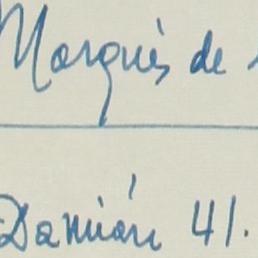 Marqués de
Damián 41.